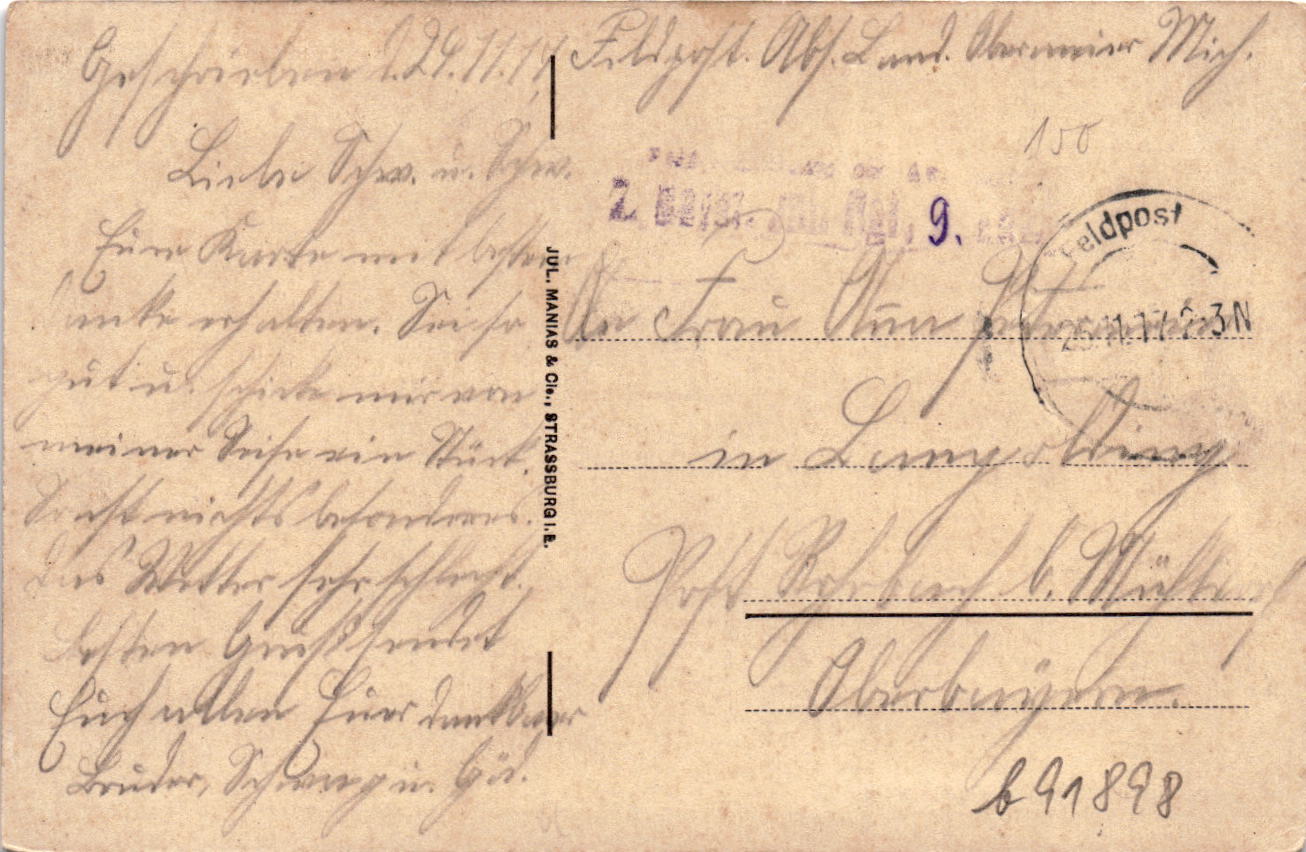 Geschrieben d. 24.11.17.
Liebe Schw. u. Schw.
Eure Karte mit bestem
Danke erhalten. Sei so
gut u. schicke mir von
meiner Seife ein Stück.
Sonst nichts besonderes.
Das Wetter sehr schlecht.
Besten Gruß sendet
Euch allen Euer dankbarer
Bruder, Schwag u. God.
JUL. MANIAS & Cie., STRASSBURG I. E.
Feldpost. Abs. Land. Obermeier Mich.
150
9.
Feldpost
25.11.17. 2-3N
An Frau Ann
in
Post Rohrbach b. Mühldorf
Oberbayern.
b91898